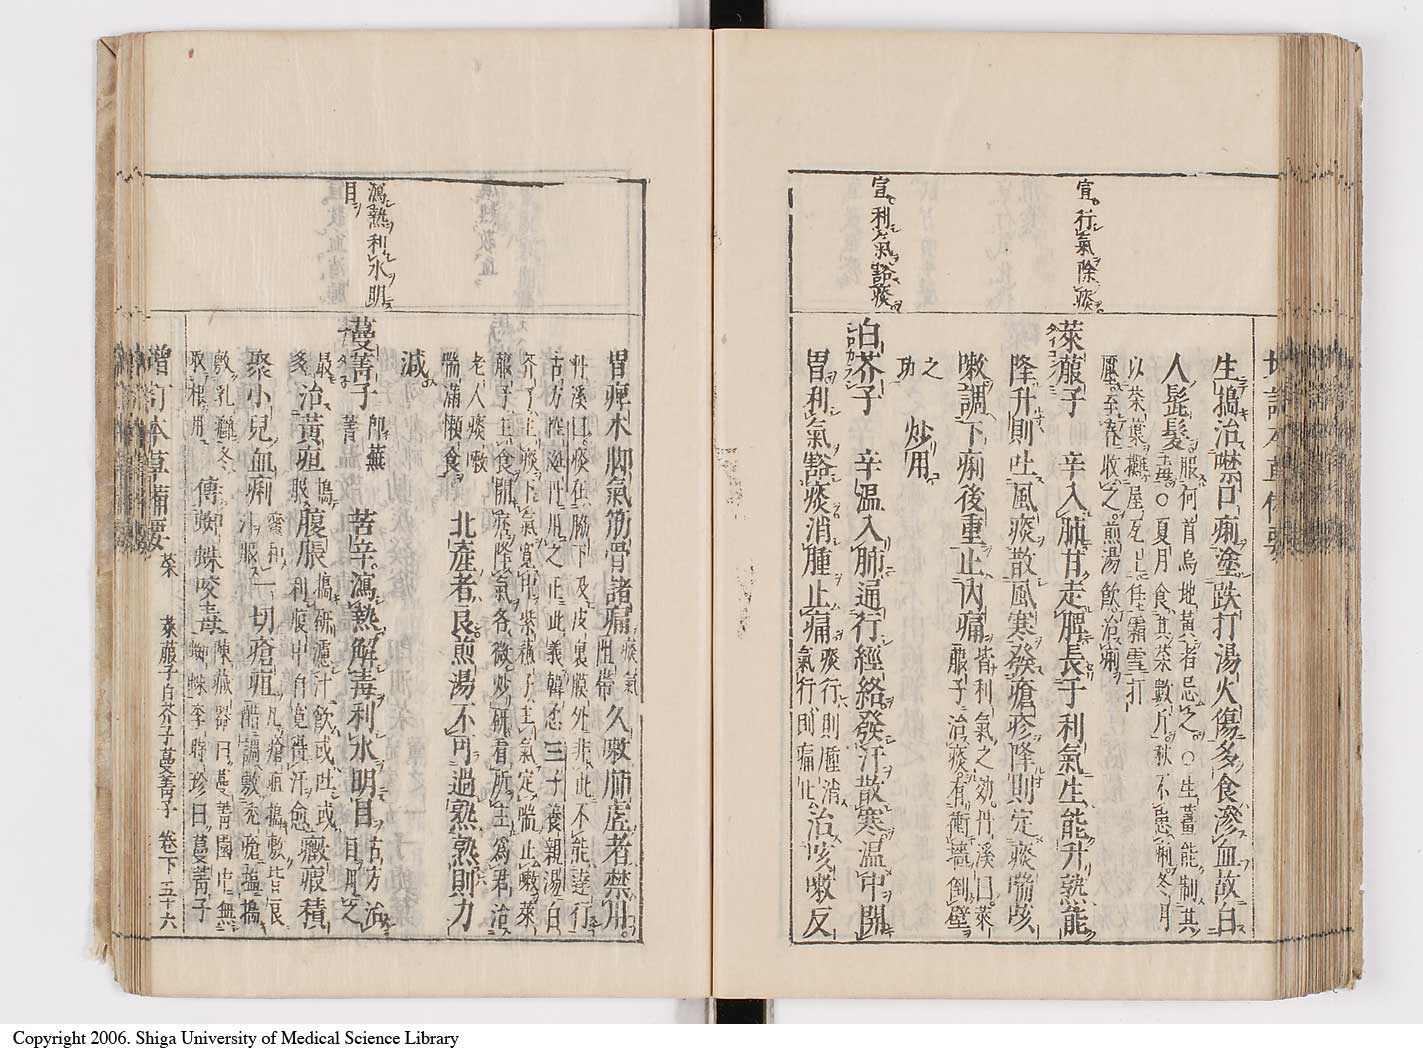 宣行氣除痰
宣利氣豁痰
生搗治噤口痢塗跌打湯火傷多食滲血故白
人髭髮服何首烏地黃者忌之○生薑能制其
毒○夏月食其菜數斤秋不患痢冬月
以菜葉攤屋瓦上任霜雪打
壓至春收之煎湯飲治痢
萊菔子 辛入肺甘走脾長于利氣生能升熟能
降升則吐風痰散風寒發瘡疹降則定痰喘咳
嗽調下痢後重止內痛皆利氣之効丹溪曰萊
菔子治痰有衝墻倒壁
之
功 炒用
白芥子 辛溫入肺通行經絡發汗散寒溫中開
胃利氣豁痰消腫止痛痰行則腫消
氣行則痛止治咳嗽反
瀉熱利水明
目
胃痺木脚氣筋骨諸痛痰氣
阻滯久嗽肺虛者禁用
丹溪曰痰在脇下及皮裏膜外非此不能達行
古方控涎丹用之正此義韓悉三子養親湯白
芥子主痰下氣寬中紫蘇子主氣定喘止嗽萊
菔子主食開痞降氣各微炒研看所主爲君治
老人痰嗽
喘滿懶食 北產者良煎湯不可過熟熟則力
減
蔓菁子即蕪
菁 苦辛瀉熱解毒利水明目古方治
目用之
最
多治黃疸搗
服腹脹搗研濾汁飲或吐或
利腹中自寬得汗愈癥瘕積
聚小兒血痢蜜和
汁服一切瘡疽凡瘡疽搗敷皆良
醋調敷禿瘡塩搗
敷乳癰冬
取根用傅蜘蛛咬毒陳藏器曰蔓菁園中無
蜘蛛李時珍曰蔓菁子
增訂本草備要 菜 萊菔子白芥子蔓菁子 卷二下 五十六
Copyright 2006. Shiga University of Medical Science Library